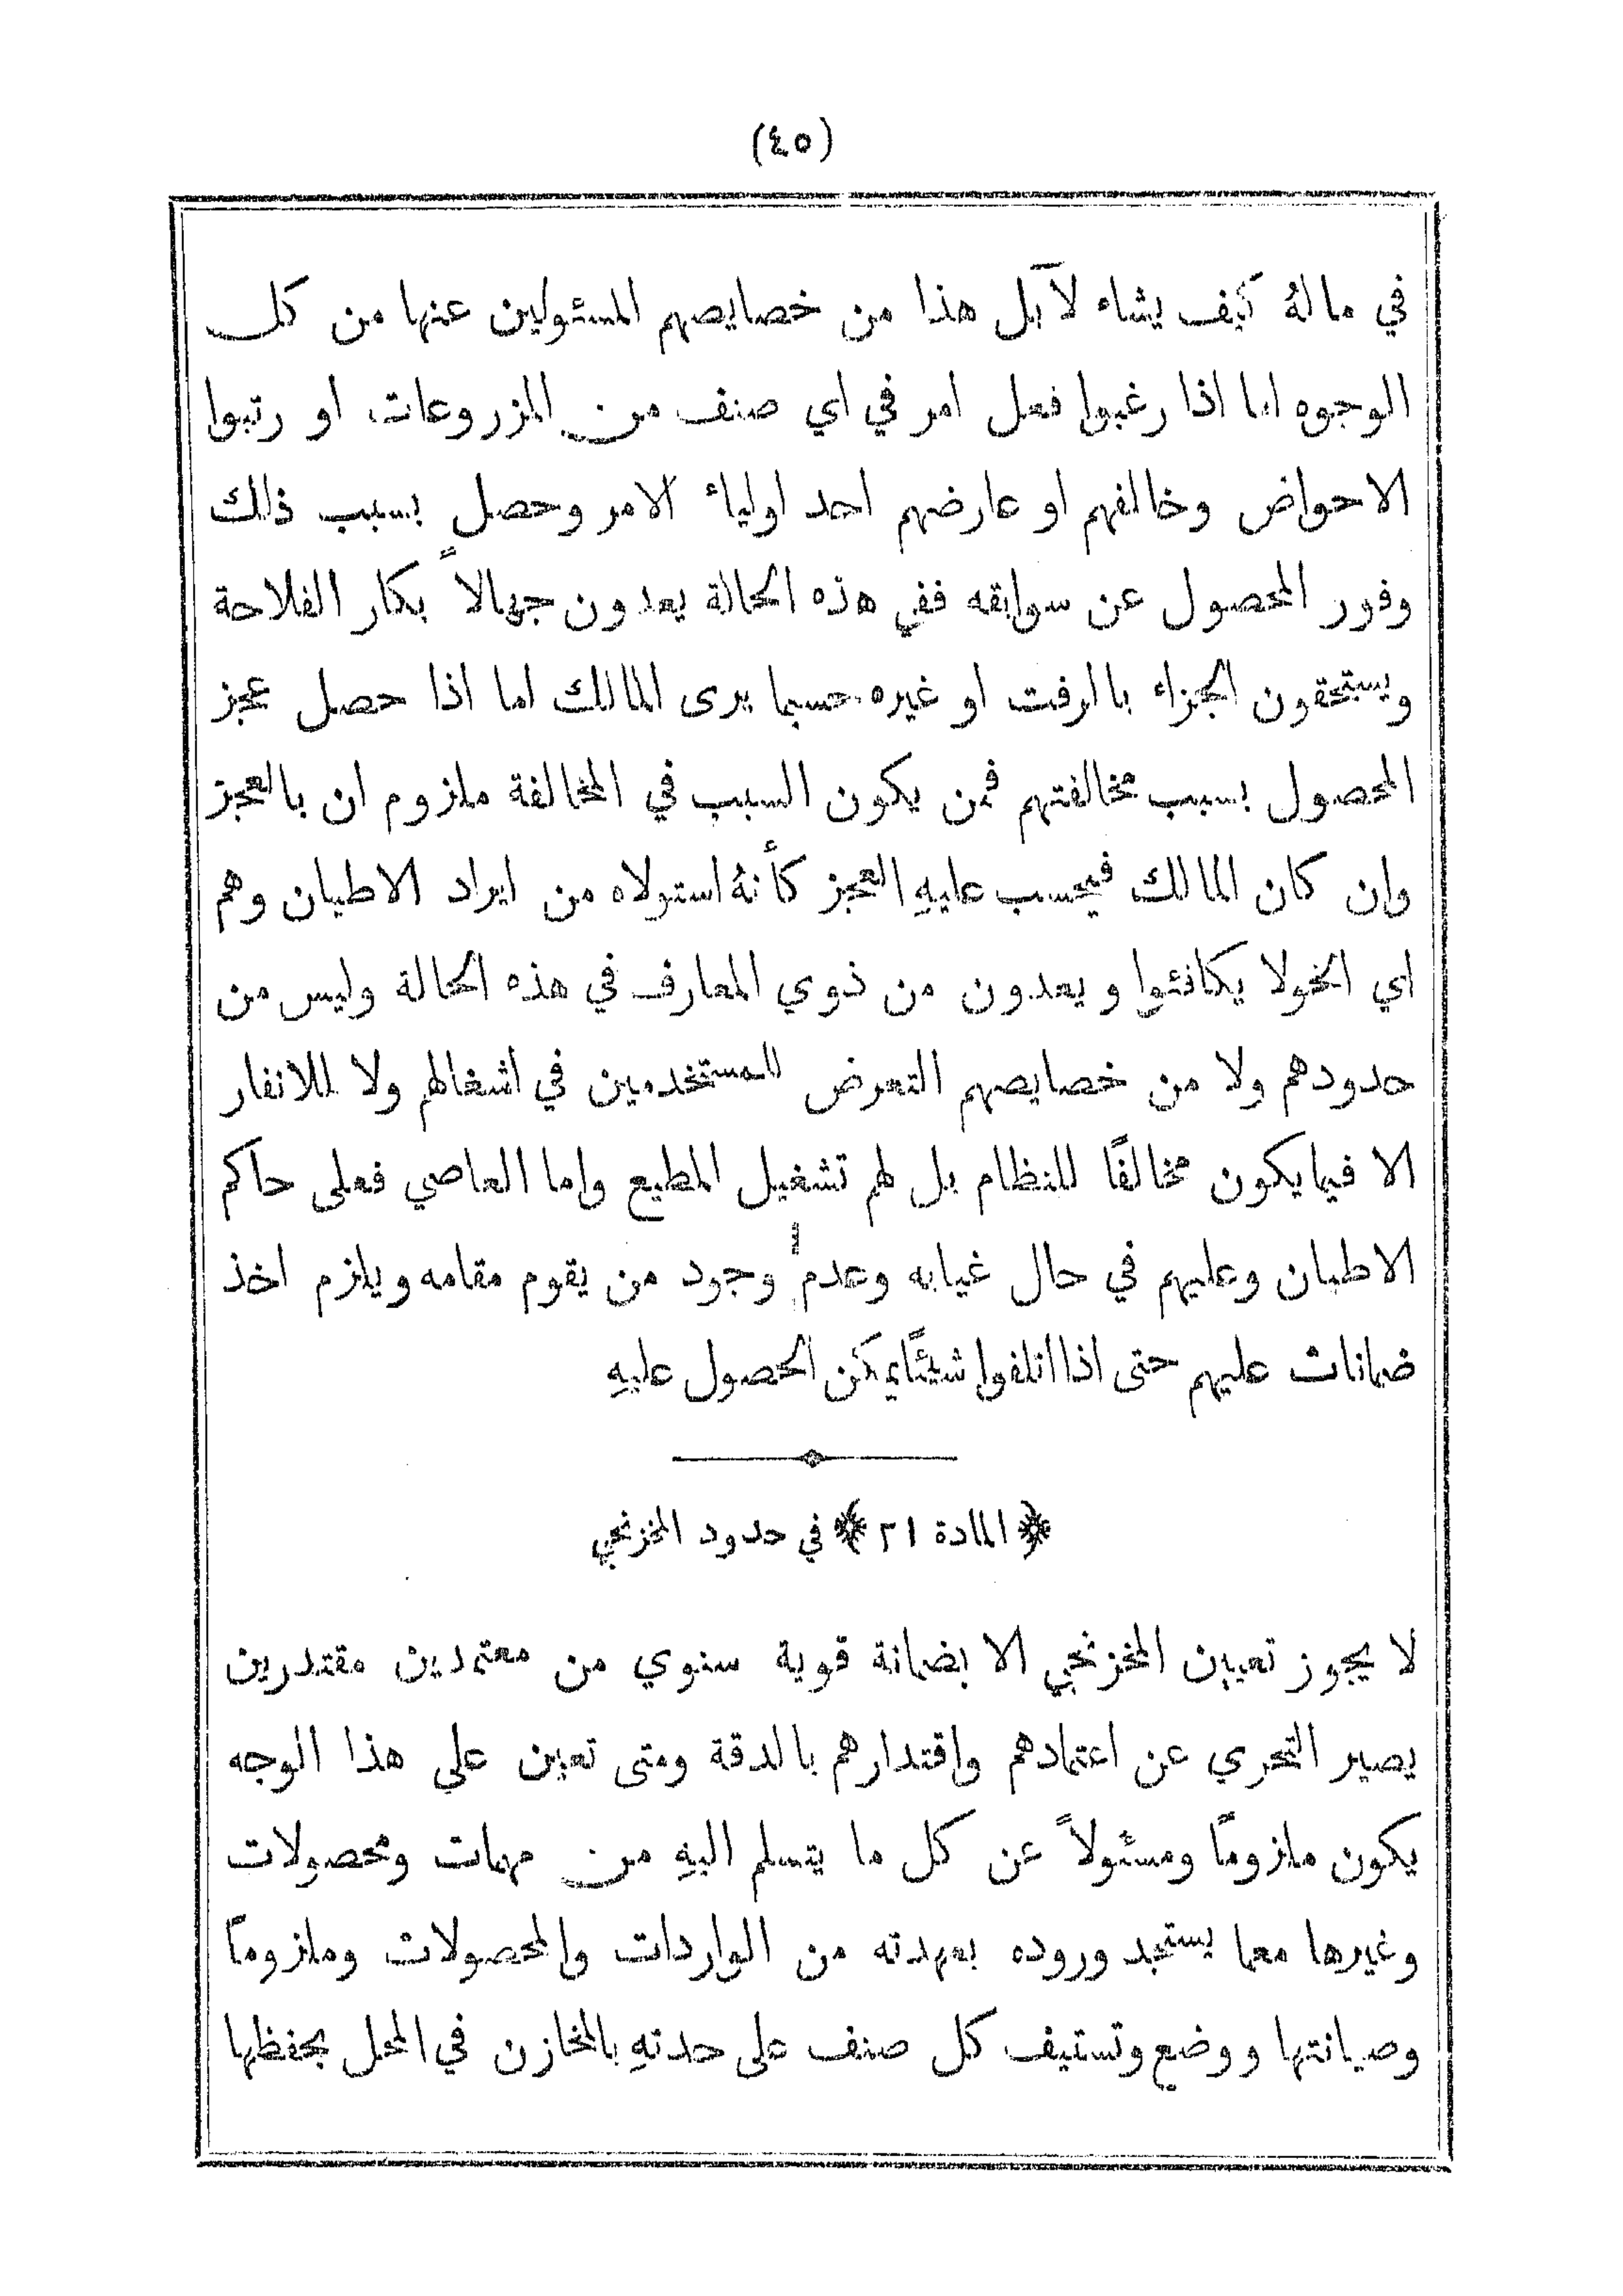 (٤٥)
في مالهُ كيف يشاء لآبل هذا من خصايصهم المسئولين عنها من كل
الوجوه اما اذا رغبوا فعل امر في اي صنف من المزروعات او رتبوا
الاحواض وخالفهم او عارضهم احد اولياء الامر وحصل بسبب ذلك
وفور المحصول عن سوابقه ففي هذه الحالة يعدون جهالاً بكار الفلاحة
ويستحقون الجزاء بالرفت او غيره حسبما يرى المالك اما اذا حصل عجز
المحصول بسبب مخالفتهم فمن يكون السبب في المخالفة ملزوم ان بالعجز
وان كان المالك فيحسب عليهِ العجز كأنهُ استولاه من ايراد الاطيان وهم
اي الخولا يكافئوا ويعدون من ذوي المعارف في هذه الحالة وليس من
حدودهم ولا من خصايصهم التعرض للمستخدمين في اشغالهم ولا للانفار
الا فيما يكون مخالفًا للنظام بل لهم تشغيل المطيع واما العاصي فعلى حاكم
الاطيان وعليهم في حال غيابه وعدم وجود من يقوم مقامه ويلزم اخذ
ضمانات عليهم حتى اذا اتلفوا شيئًا يمكن الحصول عليهِ
﴿المادة ٢١﴾ في حدود المخزنجي
لا يجوز تعيين المخزنجي الا بضمانة قوية سنوي من معتمدين مقتدرين
يصير التحري عن اعتمادهم واقتدارهم بالدقة ومتى تعين على هذا الوجه
يكون ملزومًا ومسئولاً عن كل ما يتسلم اليهِ من مهمات ومحصولات
وغيرها معما يستجد وروده بعهدته من الواردات والمحصولات وملزومًا
وصيانتها ووضع وتستيف كل صنف على حدتهِ بالمخازن في المحل بحفظها